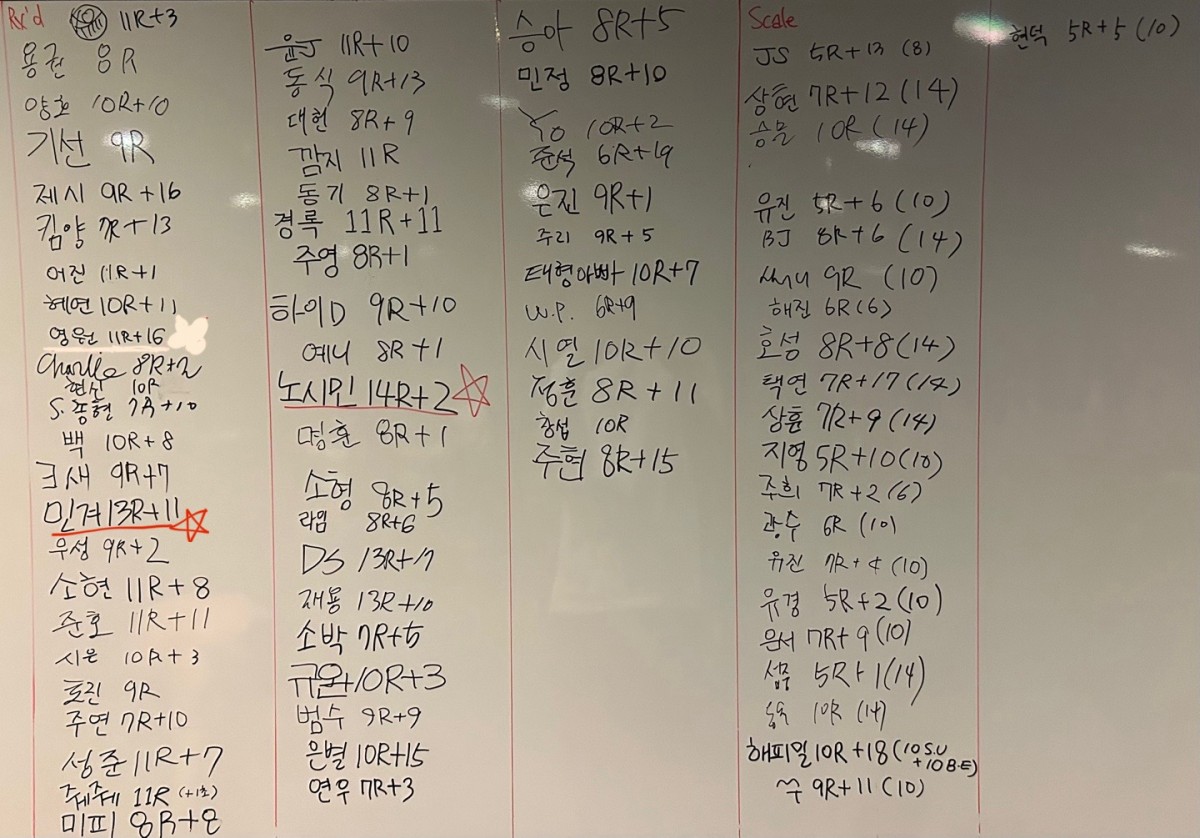 Rx'd 11R+3
용권 8R
양호 10R+10
기선 9R
제시 9R+16
킴양 7R+13
어진 11R+1
혜연 10R+11
영원 11R+16
Charlie 8R+2
현신 10R
S.종현 7R+10
백 10R+8
ヨ새 9R+7
민겨 13R+11
우성 9R+2
소현 11R+8
준호 11R+11
시은 10R+3
효진 9R
주연 7R+10
성준 11R+7
쥬쥬 11R (+1초)
미피 8R+8
윤J 11R+10
동식 9R+13
대헌 8R+9
깜지 11R
동기 8R+1
경록 11R+11
주영 8R+1
하이D 9R+10
예니 8R+1
노시민 14R+2
명훈 8R+1
소형 8R+5
라임 8R+6
DS 13R+17
재용 13R+10
소박 7R+5
규원 10R+3
범수 9R+9
은별 10R+15
연우 7R+3
승아 8R+5
민정 8R+10
YO 10R+2
준석 6R+19
은진 9R+1
주리 9R+5
태형아빠 10R+7
W.P. 6R+9
시열 10R+10
정훈 8R+11
홍섭 10R
주현 8R+15
Scale
JS 5R+13 (8)
상현 7R+12 (14)
승문 10R (14)
유진 5R+6 (10)
BJ 8R+6 (14)
써니 9R (10)
해진 6R (6)
호성 8R+8 (14)
택연 7R+17 (14)
상훈 7R+9 (14)
지영 5R+10 (10)
주희 7R+2 (6)
광수 6R (10)
유진 7R+4 (10)
유경 5R+2 (10)
은서 7R+9 (10)
5R+1 (14)
10R (14)
해피일 10R+18 (10 S.U
+10 B.E)
9R+11 (10)
현덕 5R+5 (10)